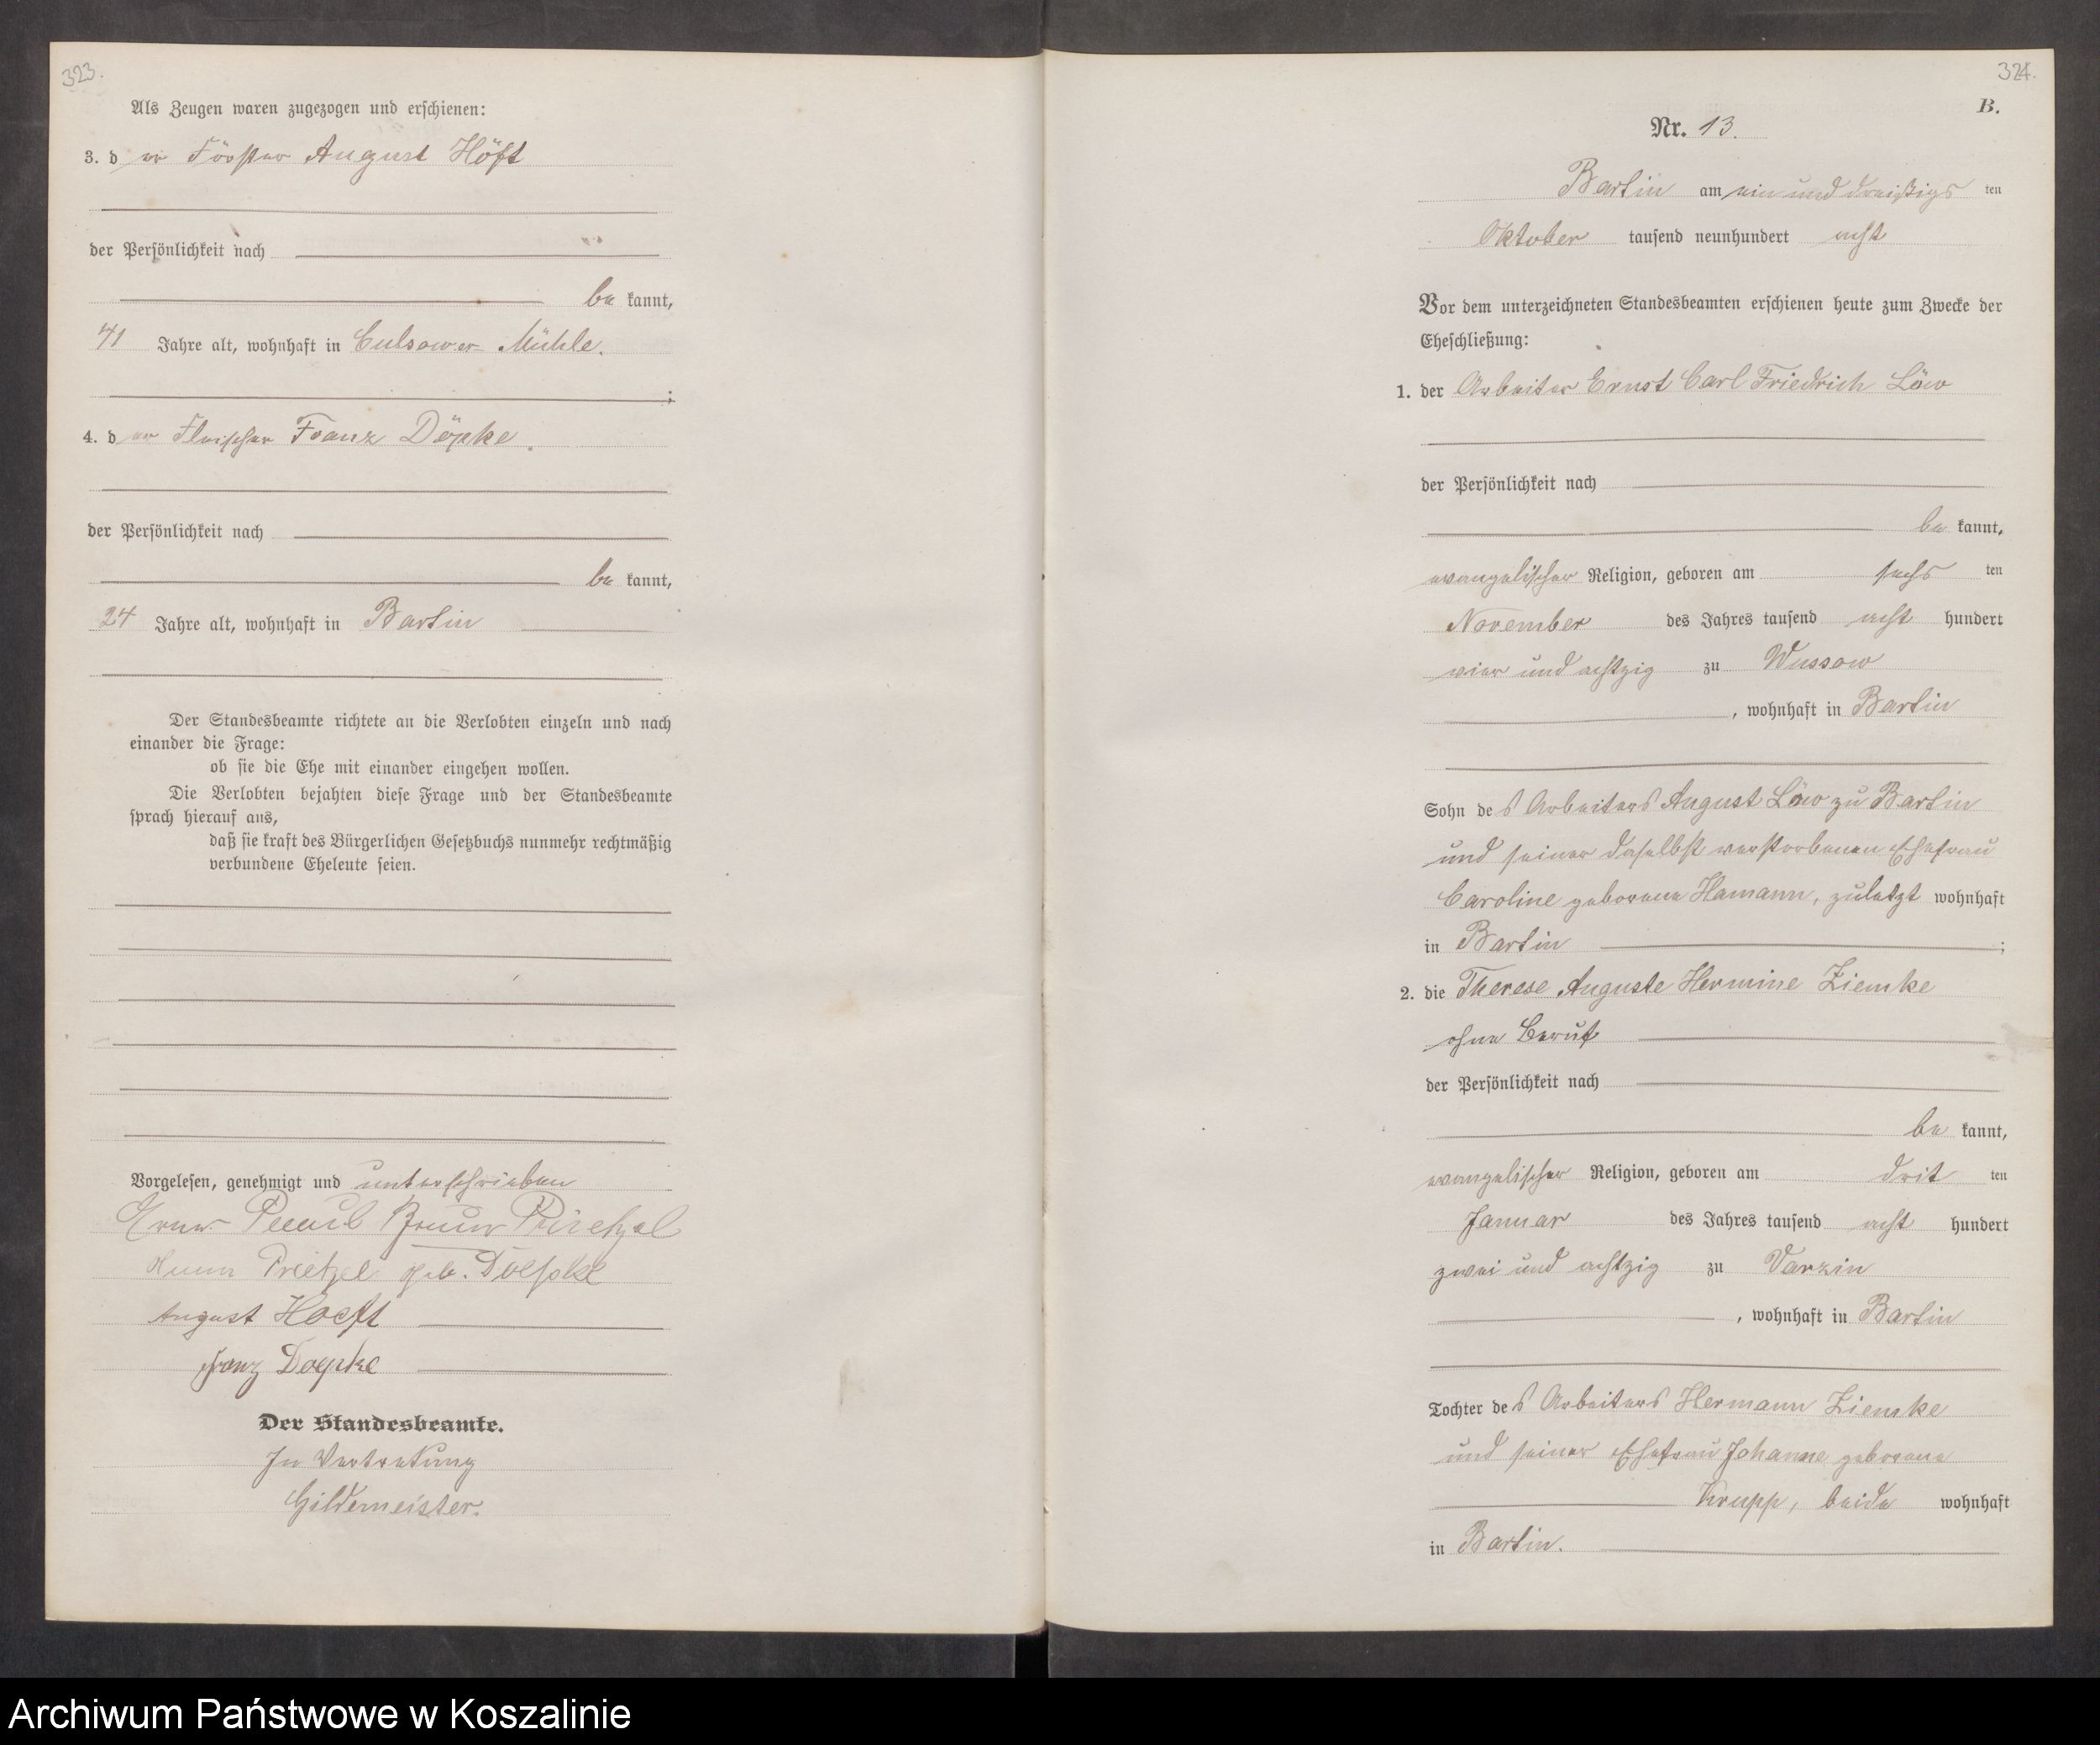 323.
Als Zeugen waren zugezogen und erschienen:
3. der Förster August Höft
der Persönlichkeit nach
be kannt,
41 Jahre alt, wohnhaft in Culsower Mühle.
;
4. der Fleischer Franz Döpke.
der Persönlichkeit nach
be kannt,
24 Jahre alt, wohnhaft in Bartin
Der Standesbeamte richtete an die Verlobten einzeln und nach
einander die Frage:
ob sie die Ehe mit einander eingehen wollen.
Die Verlobten bejahten diese Frage und der Standesbeamte
sprach hierauf aus,
daß sie kraft des Bürgerlichen Gesetzbuchs nunmehr rechtmäßig
verbundene Eheleute seien.
Vorgelesen, genehmigt und unterschrieben
Prietzel
Prietzel geb. Doepke
August Hoeft
Franz Doepke
Der Standesbeamte.
In Vertretung
Gildemeister.
324.
B.
Nr. 13.
Bartin am ein und dreißigs ten
Oktober tausend neunhundert acht
Vor dem unterzeichneten Standesbeamten erschienen heute zum Zwecke der
Eheschließung:
1. der Arbeiter Ernst Carl Friedrich Löw
der Persönlichkeit nach
be kannt,
evangelischer Religion, geboren am sechs ten
November des Jahres tausend acht hundert
vier und achtzig zu Wussow
, wohnhaft in Bartin
Sohn des Arbeiters August Löw zu Bartin
und seiner daselbst verstorbenen Ehefrau
Caroline geborene Hamann, zuletzt wohnhaft
in Bartin ;
2. die Therese Auguste Hermine Ziemke
ohne Beruf
der Persönlichkeit nach
be kannt,
evangelischer Religion, geboren am drit ten
Januar des Jahres tausend acht hundert
zwei und achtzig zu Varzin
, wohnhaft in Bartin
Tochter des Arbeiters Hermann Ziemke
und seiner Ehefrau Johanne geborene
Krupp, beide wohnhaft
in Bartin.
Archiwum Państwowe w Koszalinie